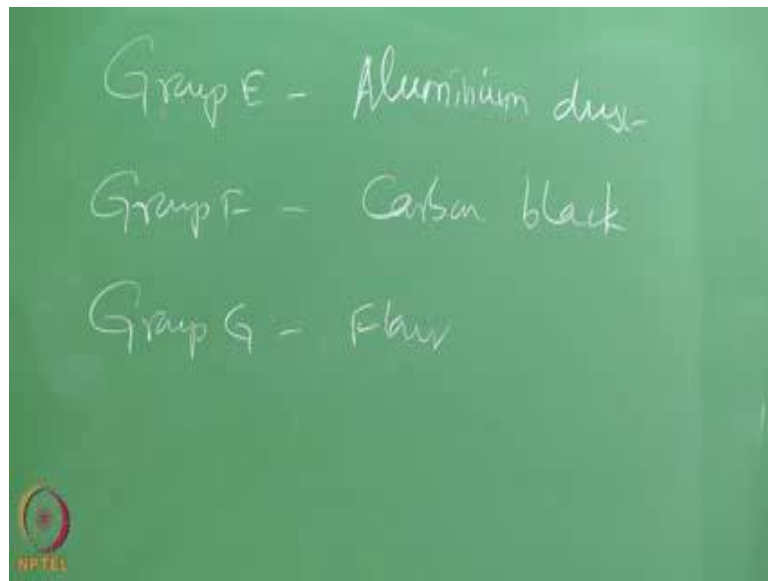 Group E - Aluminium dust
Group F - Carbon black
Group G - Flour
NPTEL